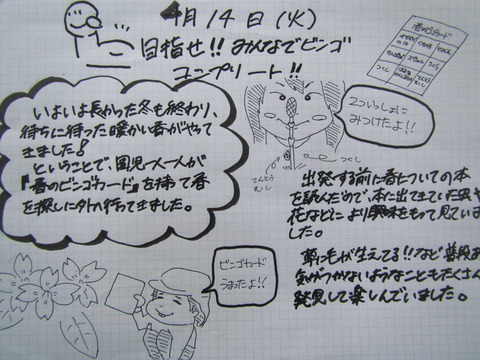 4月14日(火)
目指せ!!みんなでビンゴ
コンプリート!!
春のビンゴカード
つくし
いよいよ長かった冬も終わり、
待ちに待った暖かい春がやって
きました!
ということで、園児一人一人が
『春のビンゴカード』を持って春
を探しに外へ行ってきました。
2ついっしょに
みつけたよ!!
てんとう
むし
つくし
出発する前に春についての本
を読んだので、本に出てきていた虫や
花などにより興味をもって見ていま
した。
草に毛が生えてる!!など普段は
気がつかないようなこともたくさん
発見して楽しんでいました。
ビンゴカード
うまったよ!!